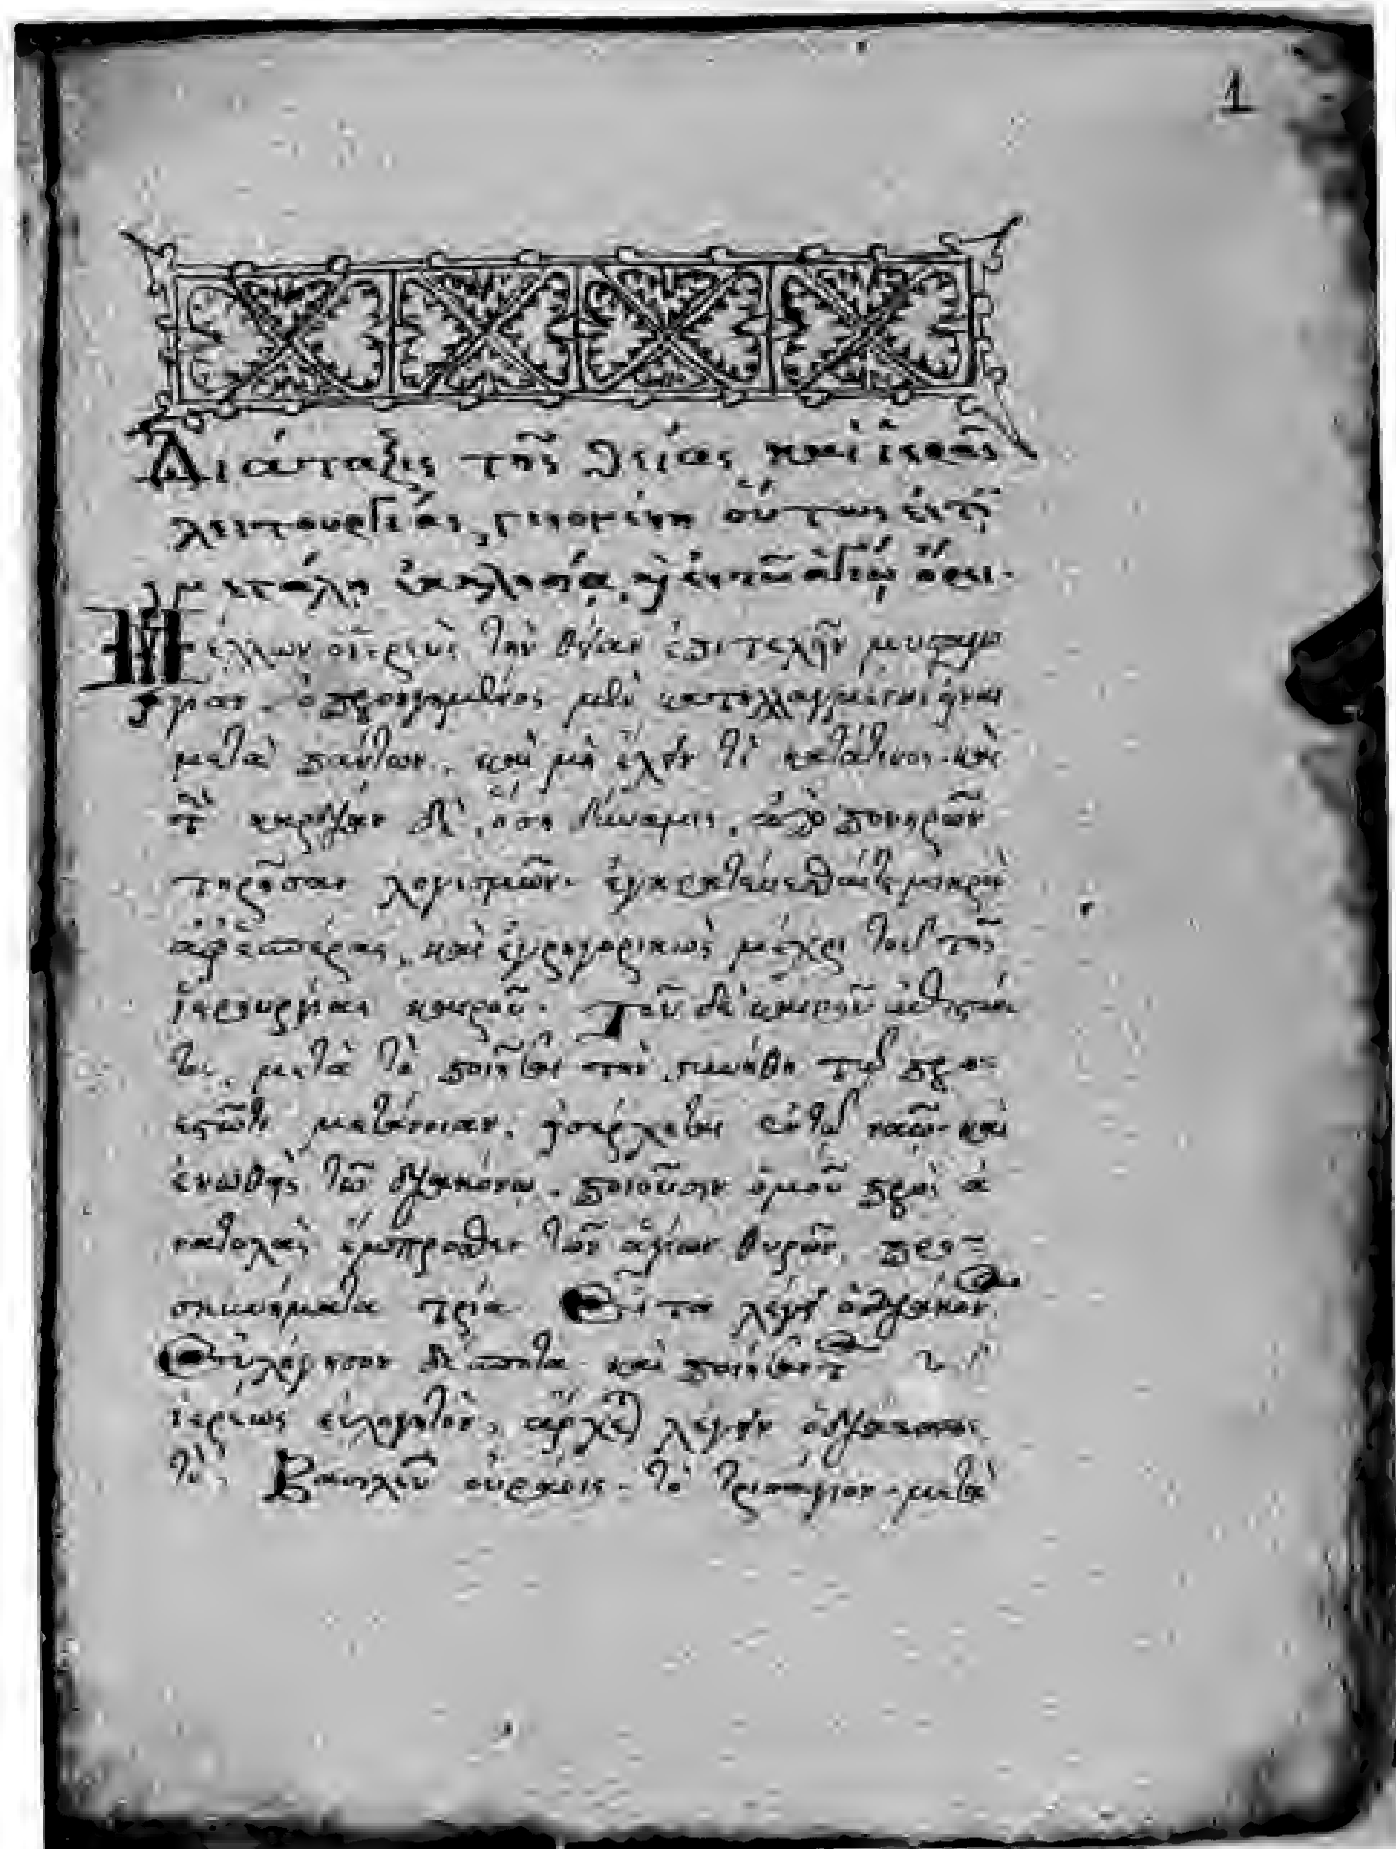 1
Διάταξις τῆς θείας καὶ ἱερᾶς
λειτουργίας, γινομένη οὕτως ἐν τῇ
μεγάλῃ ἐκκλησίᾳ, κ(αὶ) ἐν τῶ ἁγίῳ ὄρει.
Μέλλων ὁ ἱερεὺς τὴν θείαν ἐπιτελεῖν μυσταγω
γίαν. ὁ προηγουμένως μὲν κατηλλαγμένος εἶναι
μετὰ πάντων. καὶ μὴ ἔχειν τί κατά τινος. καὶ
τὴν καρδίαν δὲ ὅση δύναμις, ἀπὸ πονηρῶν
τηρῆσαι λογισμῶν. ἐγκρατεύεσθαί τε μικρὸν
ἀφ' ἑσπέρας, καὶ ἐγρηγορικῶς μέχρι τοῦ τῆς
ἱερουργίας καιροῦ. Τοῦ δὲ καιροῦ ἐπιστάν
τος, μετὰ τὸ ποιῆσαι τὴν συνήθη τῷ προ-
εστῶτι μετάνοιαν, εἰσέρχεται ἐν τῷ ναῷ. καὶ
ἑνωθεὶς τῶ διακόνω, ποιοῦσιν ὁμοῦ πρὸς ἀ
νατολὰς ἔμπροσθεν τῶν ἁγίων θυρῶν, προσ-
κυνήματα τρία. Εἶτα λέγει ὁ διάκονος
Εὐλόγησον δέσποτα. καὶ
ἱερέως εὐλογητὸν, ἄρχεται λέγειν ὁ διάκονος
τό, Βασιλεῦ οὐράνιε. τὸ τρισάγιον. μετὰ